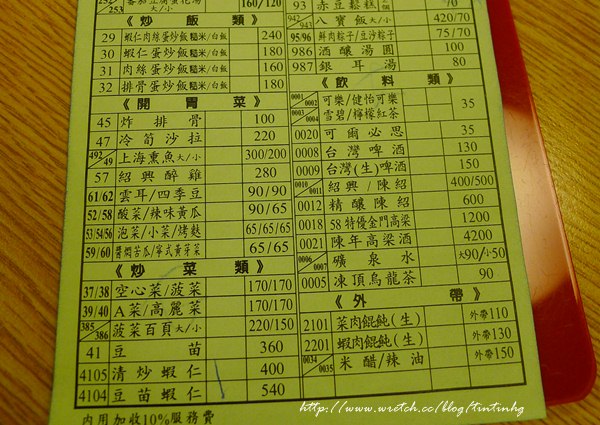 252/253 番茄豆腐蛋花湯 大/小 160/120
《炒飯類》
29 蝦仁肉絲蛋炒飯 糙米/白飯 240
30 蝦仁蛋炒飯 糙米/白飯 180
31 肉絲蛋炒飯 糙米/白飯 160
32 排骨蛋炒飯 糙米/白飯 180
《開胃菜》
45 炸排骨 100
47 冷筍沙拉 220
492/49 上海熏魚 大/小 300/200
57 紹興醉雞 280
61/62 雲耳/四季豆 90/90
52/58 酸菜/辣味黃瓜 90/65
53/54/56 泡菜/小菜/烤麩 65/65/65
59/60 醬燜苦瓜/寧式黃芽菜 65/65
《炒菜類》
37/38 空心菜/菠菜 170/170
39/40 A菜/高麗菜 170/170
385/386 菠菜百頁 大/小 220/150
41 豆苗 360
4105 清炒蝦仁 400
4104 豆苗蝦仁 540
內用加收10%服務費
93 赤豆鬆糕 /70
942/943 八寶飯 大/小 420/70
95/96 鮮肉粽子/豆沙粽子 75/70
986 酒釀湯圓 100
987 銀耳湯 80
《飲料類》
0001/0002 可樂/健怡可樂
0003/0004 雪碧/檸檬紅茶 35
0020 可爾必思 35
0008 台灣啤酒 130
0009 台灣(生)啤酒 150
0010/0011 紹興/陳紹 400/500
0012 精釀陳紹 600
0018 58特優金門高粱 1200
0021 陳年高梁酒 4200
0006/0007 礦泉水 大90/小50
0005 凍頂烏龍茶 90
《外帶》
2101 菜肉餛飩(生) 外帶110
2201 蝦肉餛飩(生) 外帶130
0034/0035 米醋/辣油 外帶150
http://www.wretch.cc/blog/tintinhg